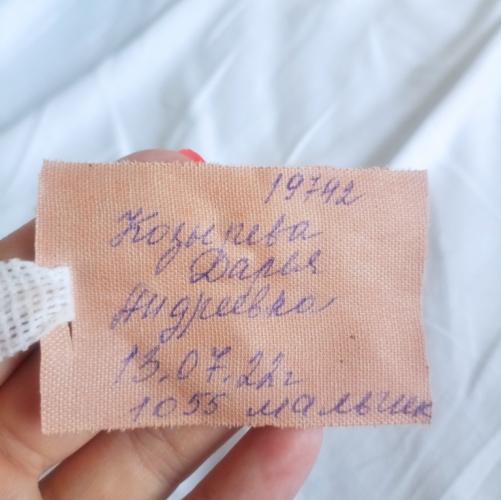 19742
Козырева
Дарья
Андреевна
13.07.22г
1055 мальчик